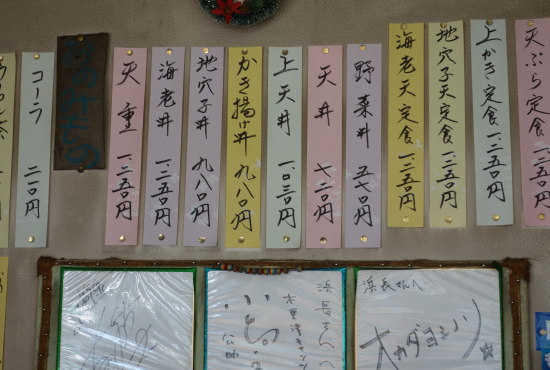 天ぷら定食 一、二五〇円
上かき定食 一、二五〇円
地穴子天定食 一、二五〇円
海老天定食 一、二五〇円
野菜丼 五七〇円
天丼 七二〇円
上天丼 一、〇三〇円
かき揚げ丼 九八〇円
地穴子丼 九八〇円
海老丼 一、二五〇円
天重 一、二五〇円
おのみもの
コーラ 二一〇円
浜長さんへ
オカダヨシノリ
浜長さんへ
木更津キャッツ